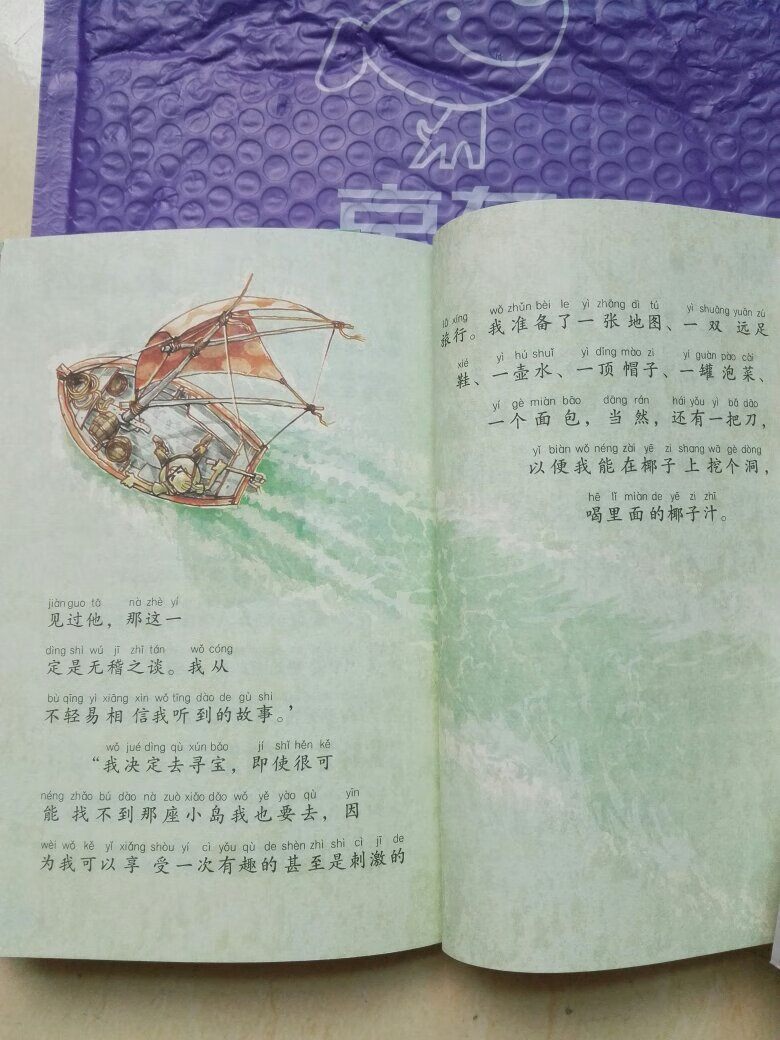 京东
jiàn guo tā nà zhè yí
见过他，那这一
dìng shì wú jī zhī tán wǒ cóng
定是无稽之谈。我从
bù qīng yì xiāng xìn wǒ tīng dào de gù shi
不轻易相信我听到的故事。’
wǒ jué dìng qù xún bǎo jí shǐ hěn kě
“我决定去寻宝，即使很可
néng zhǎo bú dào nà zuò xiǎo dǎo wǒ yě yào qù yīn
能找不到那座小岛我也要去，因
wèi wǒ kě yǐ xiǎng shòu yí cì yǒu qù de shèn zhì shì cì jī de
为我可以享受一次有趣的甚至是刺激的
lǚ xíng wǒ zhǔn bèi le yì zhāng dì tú yì shuāng yuǎn zú
旅行。我准备了一张地图、一双远足
xié yì hú shuǐ yì dǐng mào zi yí guàn pào cài
鞋、一壶水、一顶帽子、一罐泡菜、
yí gè miàn bāo dāng rán hái yǒu yì bǎ dāo
一个面包，当然，还有一把刀，
yǐ biàn wǒ néng zài yē zi shang wā gè dòng
以便我能在椰子上挖个洞，
hē lǐ miàn de yē zi zhī
喝里面的椰子汁。